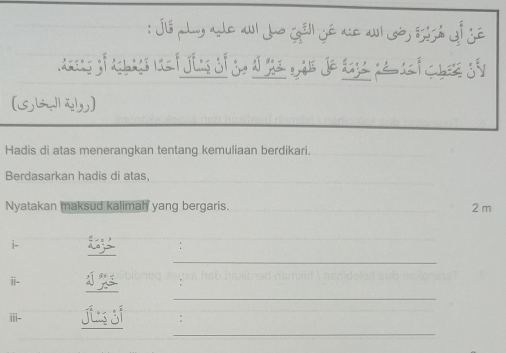 عَنْ أَبِي هُرَيْرَةَ رضي الله عنه عَنْ النَّبِيِّ صلى الله عليه وسلم قَالَ :
لَأَنْ يَحْتَطِبَ أَحَدُكُمْ حُزْمَةً عَلَى ظَهْرِهِ خَيْرٌ لَهُ مِنْ أَنْ يَسْأَلَ أَحَدًا فَيُعْطِيَهُ أَوْ يَمْنَعَهُ.
(رواية البخاري)
Hadis di atas menerangkan tentang kemuliaan berdikari.
Berdasarkan hadis di atas,
Nyatakan maksud kalimah yang bergaris. 2 m
i- حُزْمَةً :
ii- خَيْرٌ لَهُ :
iii- أَنْ يَسْأَلَ :